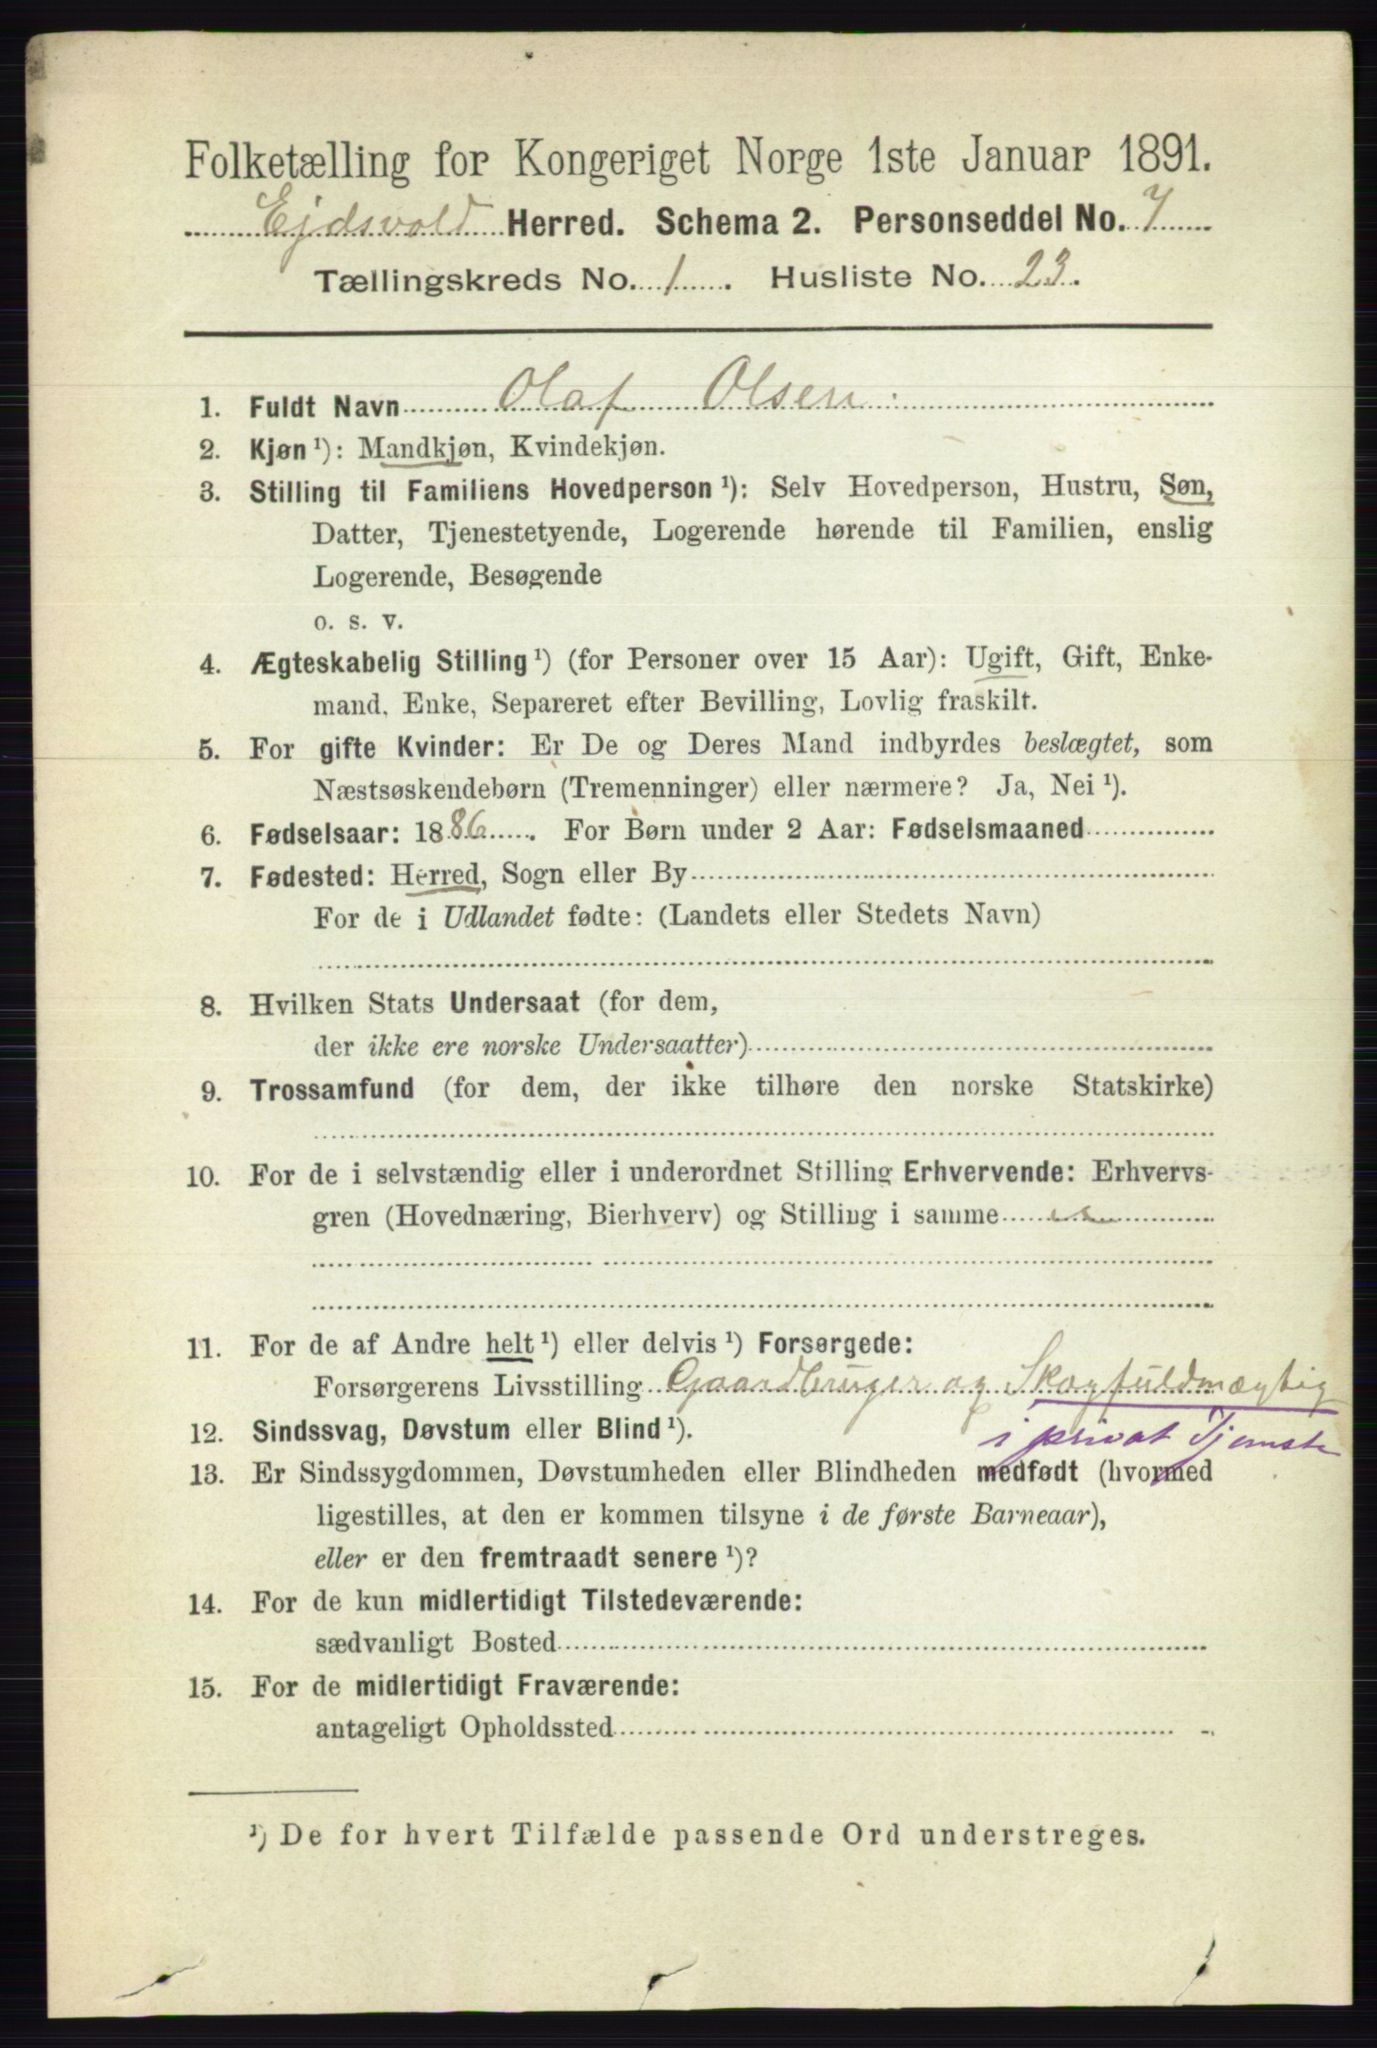 Folketælling for Kongeriget Norge 1ste Januar 1891.
Ejdsvold Herred. Schema 2. Personseddel No. 7
Tællingskreds No. 1. Husliste No. 23.
1. Fuldt Navn Olaf Olsen
2. Kjøn ¹): Mandkjøn, Kvindekjøn.
3. Stilling til Familiens Hovedperson ¹): Selv Hovedperson, Hustru, Søn,
Datter, Tjenestetyende, Logerende hørende til Familien, enslig
Logerende, Besøgende
o. s. v.
4. Ægteskabelig Stilling ¹) (for Personer over 15 Aar): Ugift, Gift, Enke-
mand, Enke, Separeret efter Bevilling, Lovlig fraskilt.
5. For gifte Kvinder: Er De og Deres Mand indbyrdes beslægtet, som
Næstsøskendebørn (Tremenninger) eller nærmere? Ja, Nei ¹).
6. Fødselsaar: 1886. For Børn under 2 Aar: Fødselsmaaned
7. Fødested: Herred, Sogn eller By
For de i Udlandet fødte: (Landets eller Stedets Navn)
8. Hvilken Stats Undersaat (for dem,
der ikke ere norske Undersaatter)
9. Trossamfund (for dem, der ikke tilhøre den norske Statskirke)
10. For de i selvstændig eller i underordnet Stilling Erhvervende: Erhvervs-
gren (Hovednæring, Bierhverv) og Stilling i samme
11. For de af Andre helt ¹) eller delvis ¹) Forsørgede:
Forsørgerens Livsstilling Gaardbruger og Skogfuldmægtig
i privat Tjeneste
12. Sindssvag, Døvstum eller Blind ¹).
13. Er Sindssygdommen, Døvstumheden eller Blindheden medfødt (hvormed
ligestilles, at den er kommen tilsyne i de første Barneaar),
eller er den fremtraadt senere ¹)?
14. For de kun midlertidigt Tilstedeværende:
sædvanligt Bosted
15. For de midlertidigt Fraværende:
antageligt Opholdssted
¹) De for hvert Tilfælde passende Ord understreges.